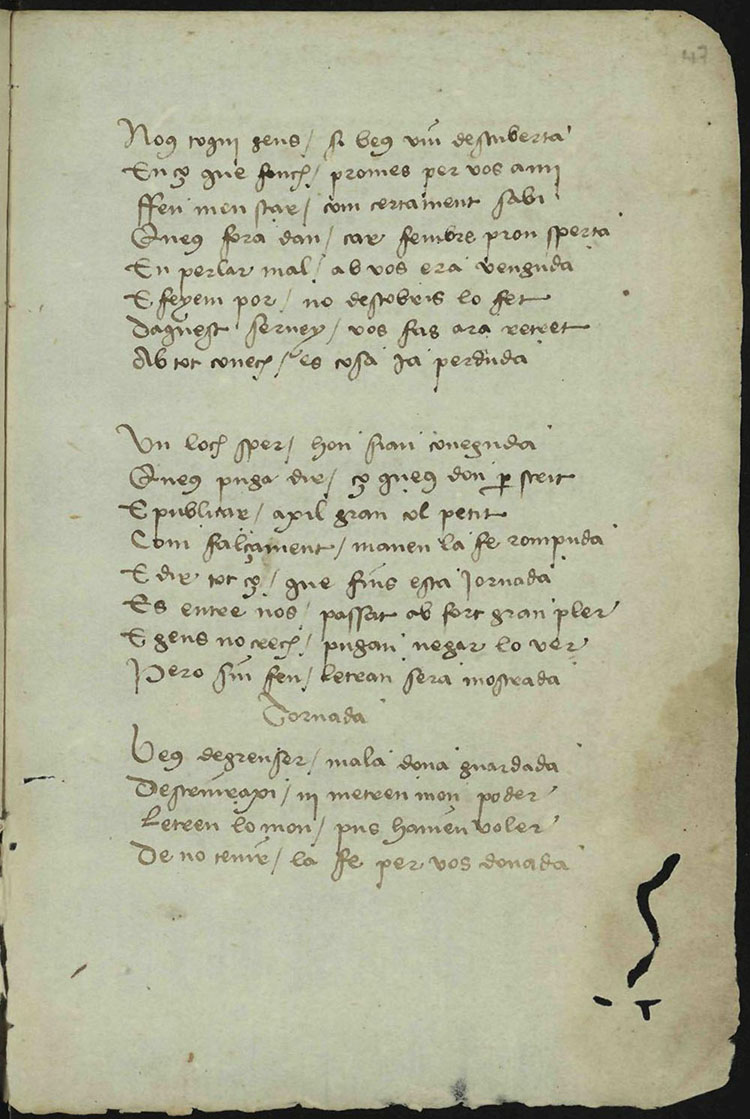 47
Nous togui gens / si beus viu descuberta
En ço que fonch / promes per vos a mi
ffeu men star / com certament sabi
Queus fora dan / car fembre pron sperta
En perlar mal / ab vos era venguda
E feyem por / no descobris lo fet
Daquest servey / vos fas ara retret
Ab tot conech / es cosa ja perduda
Un loch sper / hon siau coneguda
Queus puga dir / ço queus don per scrit
E publicar / axil gran col petit
Com falçament / maueu la fe rompuda
E dir tot ço / que fins esta jornada
Es entre nos / passat ab fort gran pler
E gens no crech / pugau negar lo ver
Pero siu feu / letran sera mostrada
Tornada
Beus degrenser / mala dona guardada
Destruiraxi / ni metren mon poder
Letren lo mon / pus haueu voler
De no tenir / la fe per vos donada